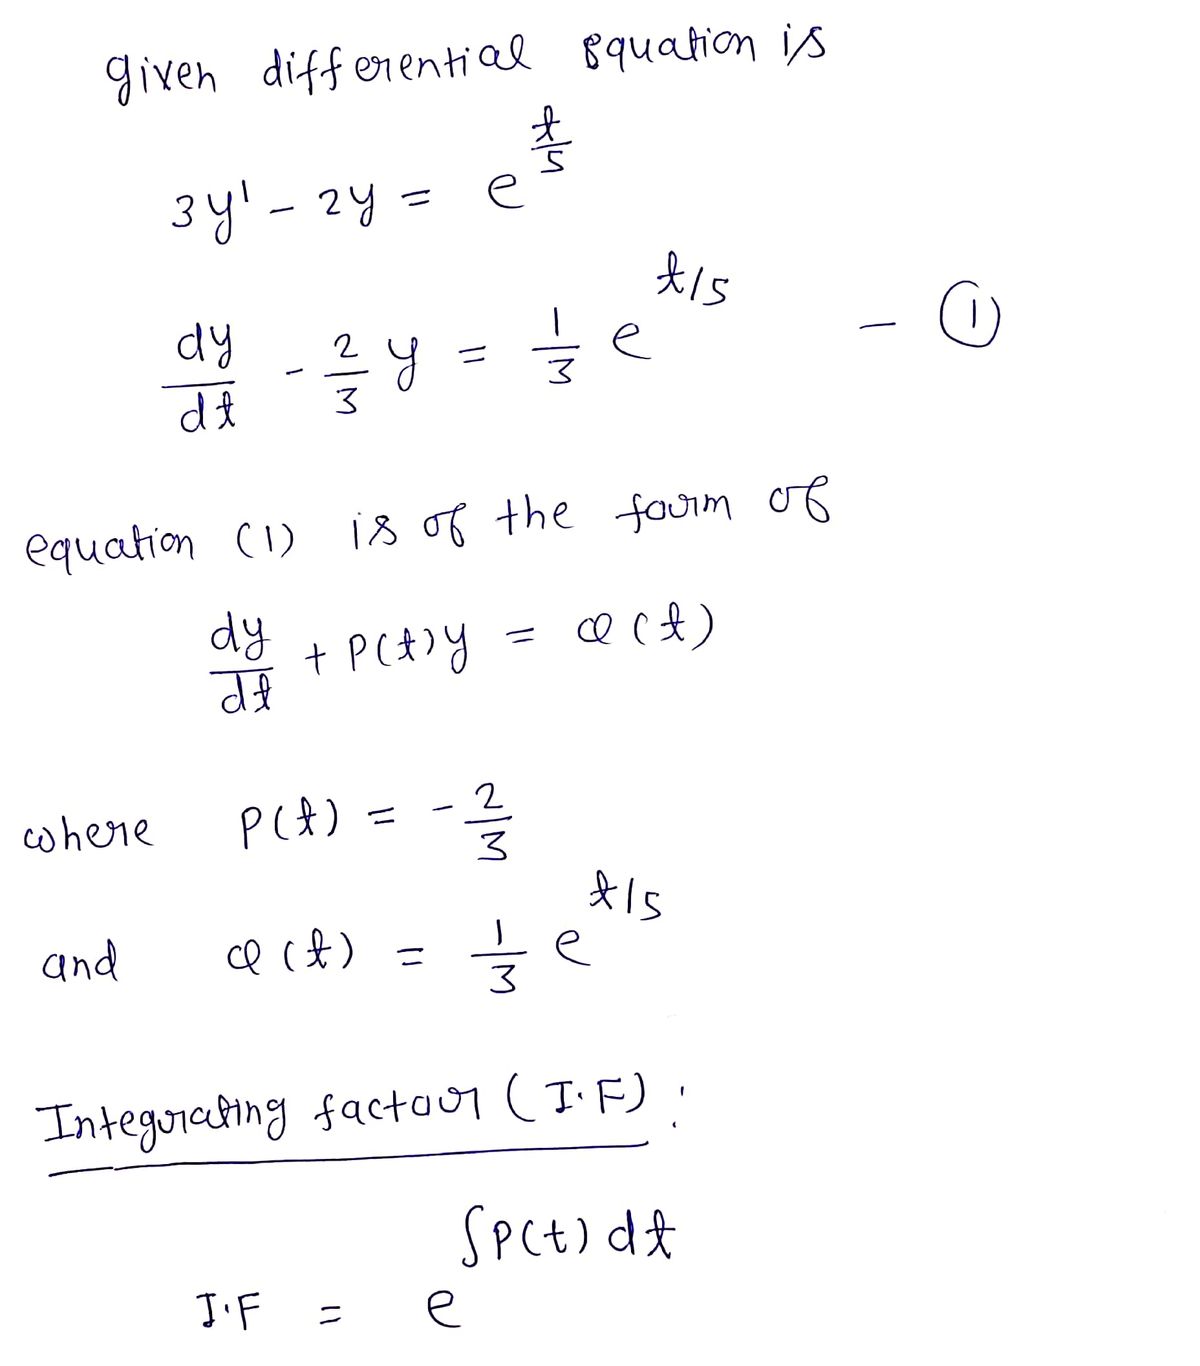 given differential equation is
3y' - 2y = e^{t/5}
dy/dt - 2/3 y = 1/3 e^{t/5} - ①
equation (1) is of the form of
dy/dt + P(t)y = Q(t)
where P(t) = - 2/3
and Q(t) = 1/3 e^{t/5}
Integrating factor (I.F) :
I.F = e^{∫P(t) dt}